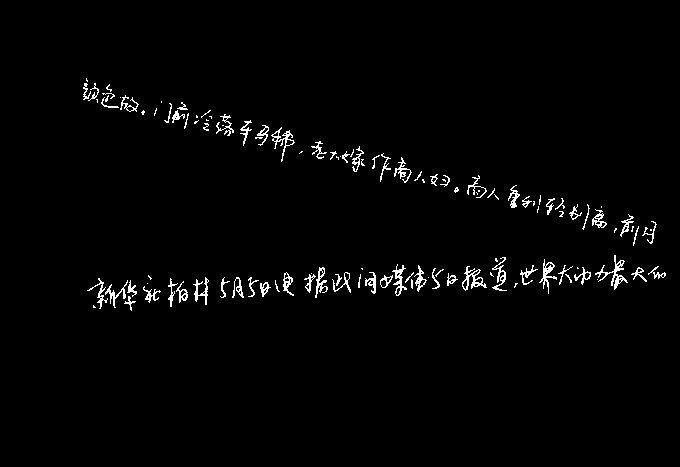 颜色故。门前冷落车马稀,老大嫁作商人妇。商人重利轻别离,前月
新华社柏林5月5日电 据此间媒体5日报道,世界最大的